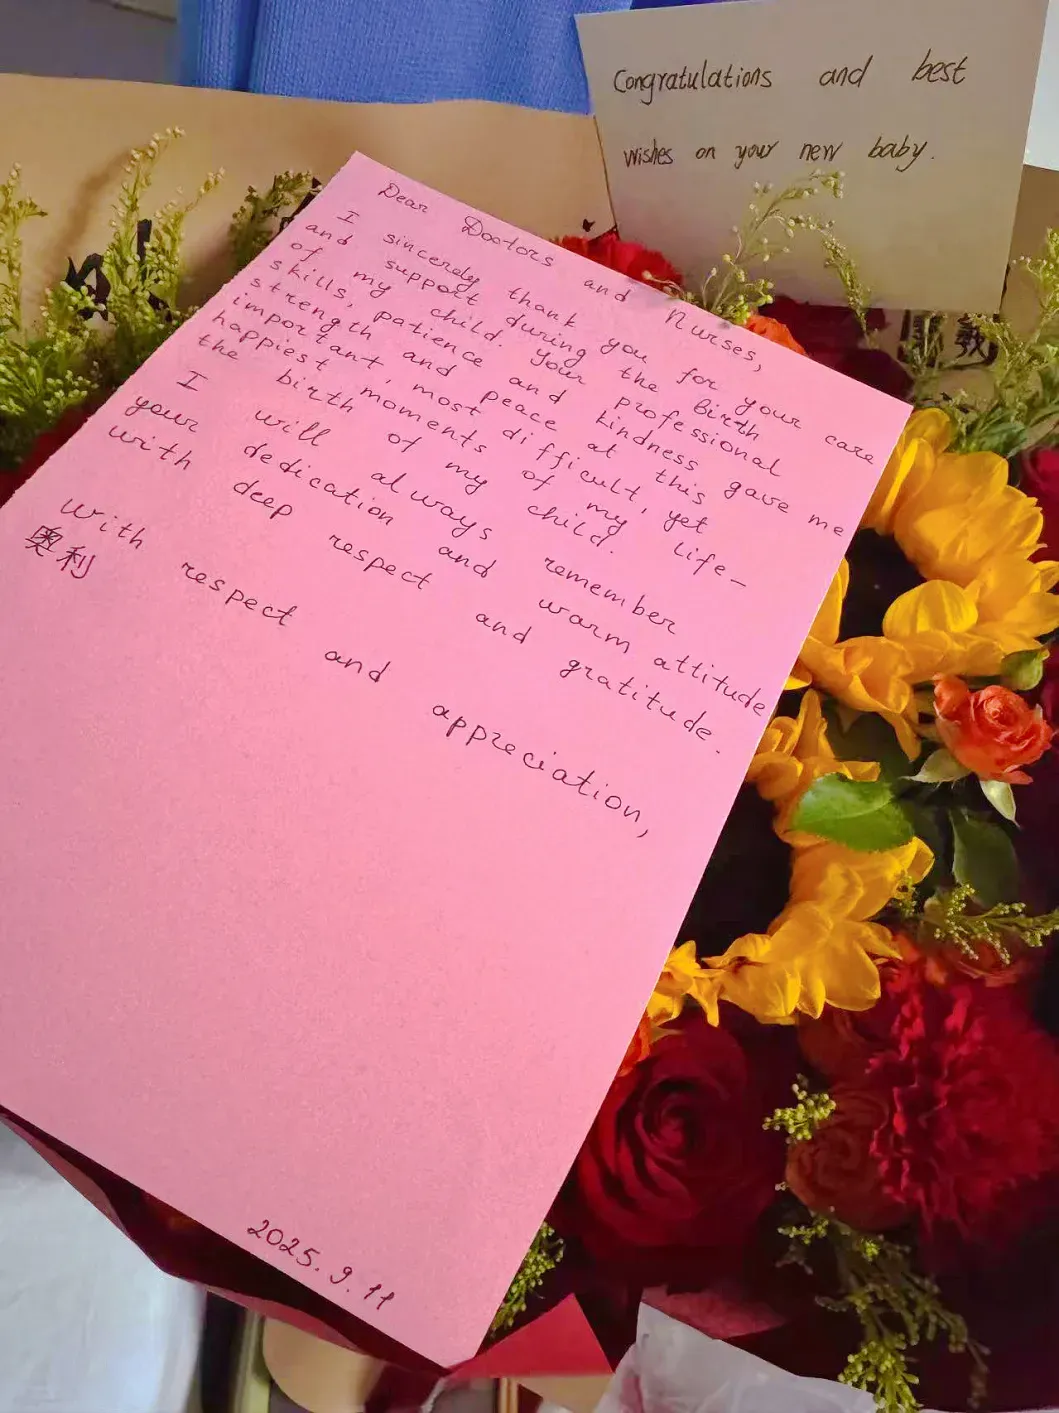 Congratulations and best
wishes on your new baby.
Dear Doctors and Nurses,
I sincerely thank you for your care
and support during the birth
of my child. Your professional
skills, patience and kindness gave me
strength and peace at this
important, most difficult, yet
happiest moments of my life-
the birth of my child.
I will always remember
your dedication and warm attitude
with deep respect and gratitude.
With respect and appreciation,
奥利
2025.9.11